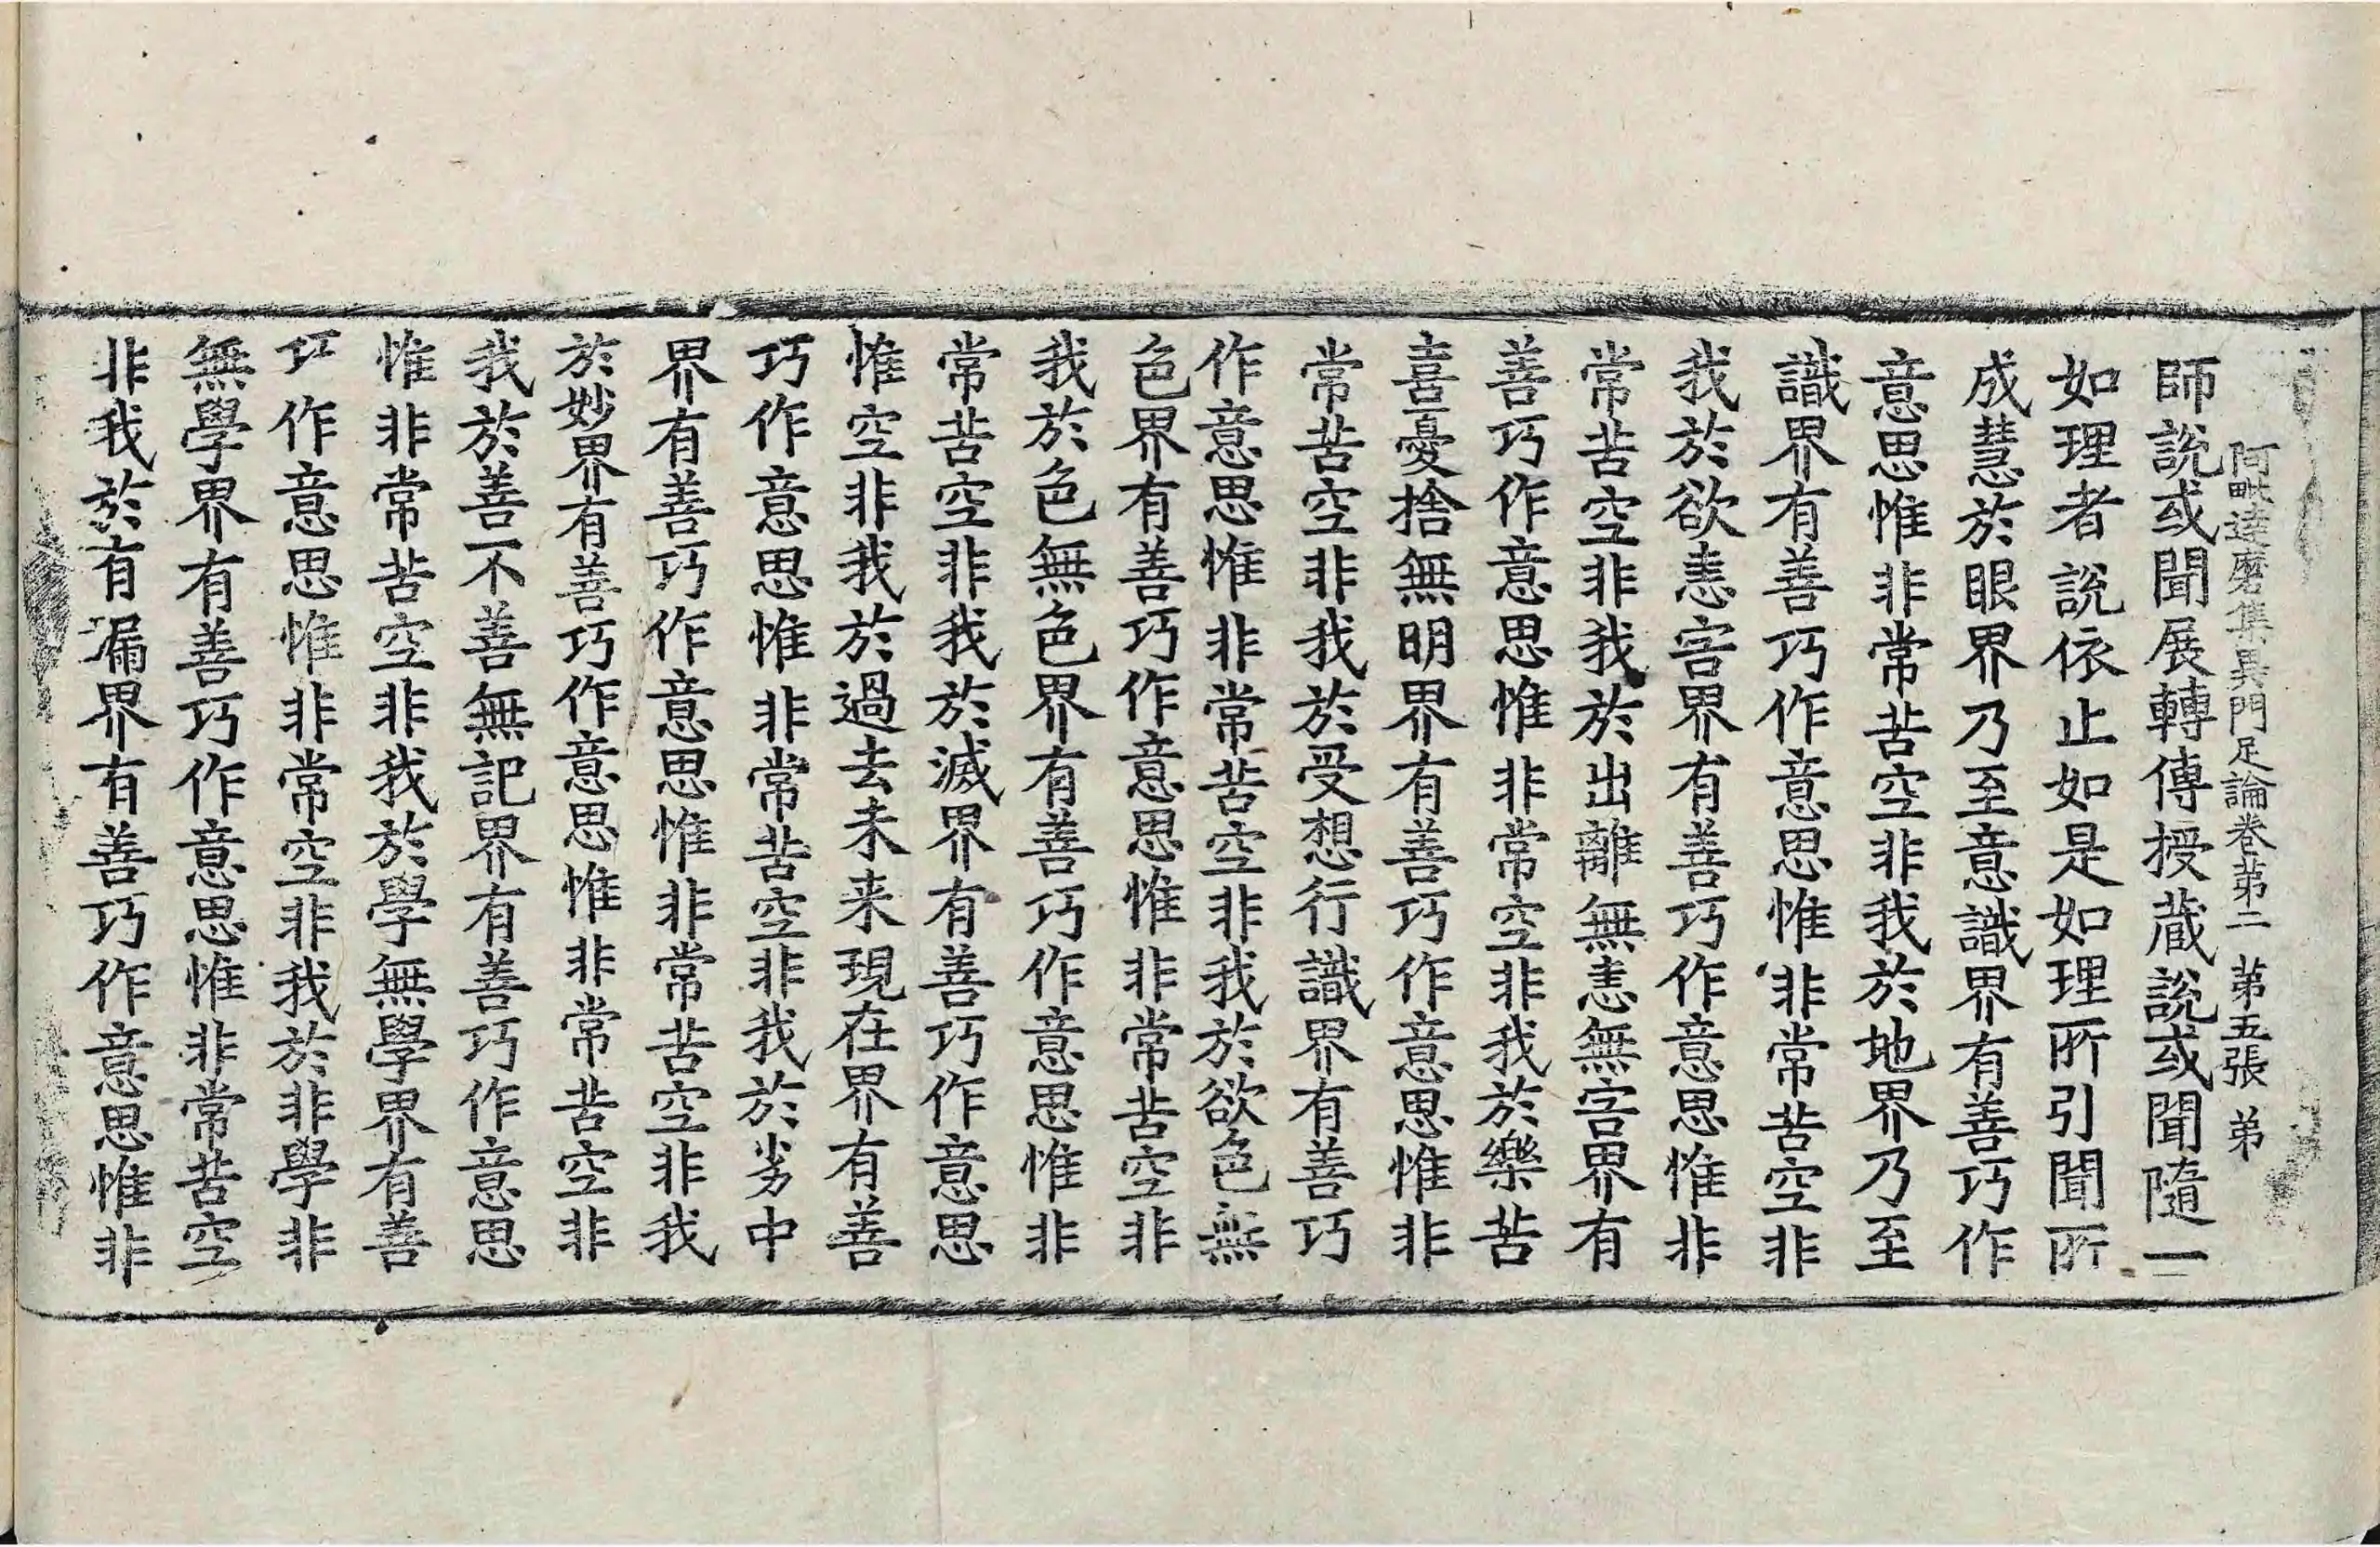 阿毗達磨集異門足論卷苐二 苐五張 弟
師說或聞展轉傳授藏說或聞隨一
如理者說依止如是如理所引聞所
成慧於眼界乃至意識界有善巧作
意思惟非常苦空非我於地界乃至
識界有善巧作意思惟非常苦空非
我於欲恚害界有善巧作意思惟非
常苦空非我於出離無恚無害界有
善巧作意思惟非常空非我於樂苦
喜憂捨無明界有善巧作意思惟非
常苦空非我於受想行識界有善巧
作意思惟非常苦空非我於欲色無
色界有善巧作意思惟非常苦空非
我於色無色界有善巧作意思惟非
常苦空非我於滅界有善巧作意思
惟空非我於過去未来現在界有善
巧作意思惟非常苦空非我於劣中
界有善巧作意思惟非常苦空非我
於妙界有善巧作意思惟非常苦空非
我於善不善無記界有善巧作意思
惟非常苦空非我於學無學界有善
巧作意思惟非常空非我於非學非
無學界有善巧作意思惟非常苦空
非我於有漏界有善巧作意思惟非